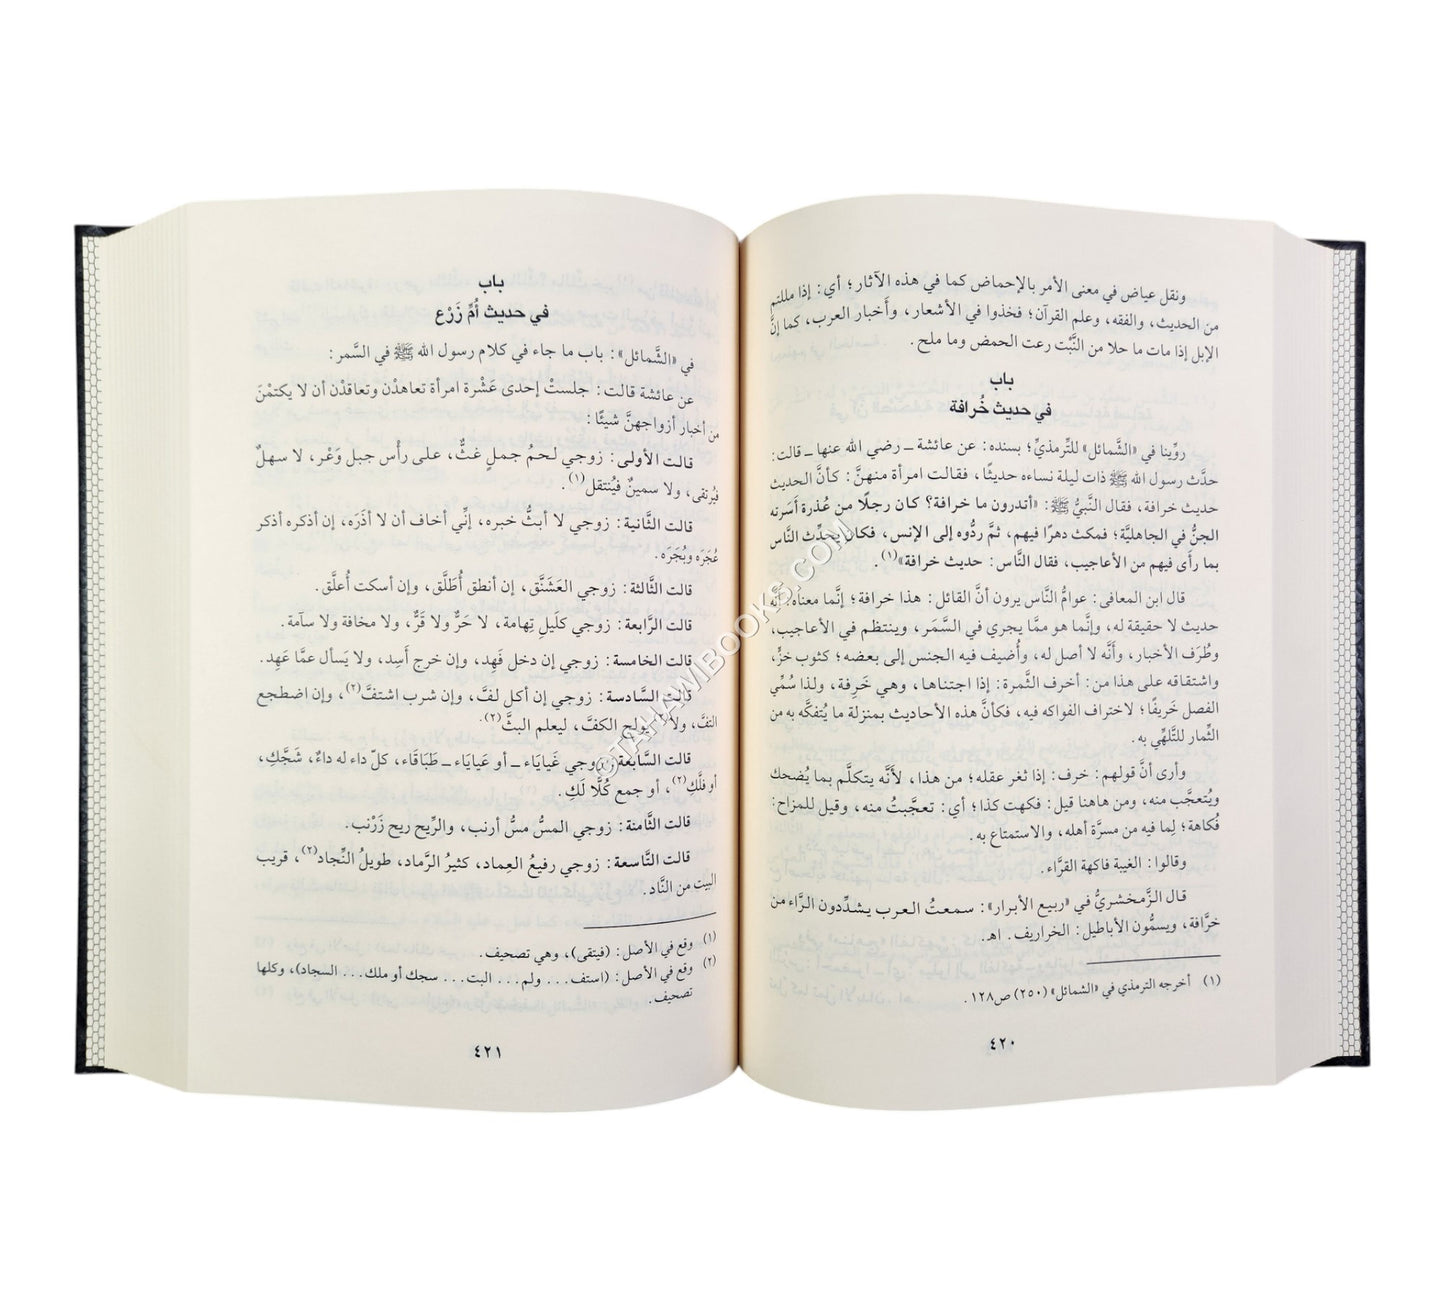 ونقل عياض في معنى الأمر بالإحماض كما في هذه الآثار؛ أي: إذا مللتم
من الحديث، والفقه، وعلم القرآن؛ فخذوا في الأشعار، وأخبار العرب، كما إنَّ
الإبل إذا مات ما حلا من النَّبْت رعت الحمض وما ملح.
باب
في حديث خُرافة
روِّينا في «الشَّمائل» للتِّرمذيِّ؛ بسنده: عن عائشة ـ رضي الله عنها ـ قالت:
حدَّث رسول الله ﷺ ذات ليلة نساءه حديثًا، فقالت امرأة منهنَّ: كأنَّ الحديث
حديث خرافة، فقال النَّبيُّ ﷺ: «أتدرون ما خرافة؟ كان رجلًا من عُذرة أَسَرته
الجنُّ في الجاهليَّة؛ فمكث دهرًا فيهم، ثمَّ ردُّوه إلى الإنس، فكان يحدِّث النَّاس
بما رأى فيهم من الأعاجيب، فقال النَّاس: حديث خرافة»(١).
قال ابن المعافى: عوامُّ النَّاس يرون أنَّ القائل: هذا خرافة؛ إنَّما معناه: أنَّه
حديث لا حقيقة له، وإنَّما هو ممَّا يجري في السَّمَر، وينتظم في الأعاجيب،
وطُرَف الأخبار، وأنَّه لا أصل له، وأُضيف فيه الجنس إلى بعضه؛ كثوب خزٍّ،
واشتقاقه على هذا من: أخرف الثَّمرة: إذا اجتناها، وهي خَرِفة، ولذا سُمِّي
الفصل خَريفًا؛ لاختراف الفواكه فيه، فكأنَّ هذه الأحاديث بمنزلة ما يُتفكَّه به من
الثِّمار للتَّلهِّي به.
وأرى أنَّ قولهم: خرف: إذا تغر عقله؛ من هذا، لأَنَّه يتكلَّم بما يُضحك
ويُتعجَّب منه، ومن هاهنا قيل: فكهت كذا؛ أي: تعجَّبتُ منه، وقيل للمزاح:
فُكاهة؛ لِما فيه من مسرَّة أهله، والاستمتاع به.
وقالوا: الغيبة فاكهة القرَّاء.
قال الزَّمخشريُّ في «ربيع الأبرار»: سمعتُ العرب يشدِّدون الرَّاء من
خرَّافة، ويسمُّون الأباطيل: الخراريف. اهـ.
(١) أخرجه الترمذي في «الشمائل» (٢٥٠) ص١٢٨.
٤٢٠
باب
في حديث أُمِّ زَرْع
في «الشَّمائل»: باب ما جاء في كلام رسول الله ﷺ في السَّمر:
عن عائشة قالت: جلستْ إحدى عَشْرة امرأة تعاهدْن وتعاقدْن أن لا يكتمْنَ
من أخبار أزواجهنَّ شيئًا:
قالت الأولى: زوجي لحمُ جملٍ غثٌّ، على رأْس جبل وَعْر، لا سهلٌ
فيُرتقى، ولا سمينٌ فيُنتقل(١).
قالت الثَّانية: زوجي لا أبثُّ خبره، إنِّي أخاف أن لا أذَرَه، إن أذكره أذكر
عُجَرَه وبُجَرَه.
قالت الثَّالثة: زوجي العَشَنَّق، إن أنطق أُطَلَّق، وإن أسكت أُعلَّق.
قالت الرَّابعة: زوجي كلَيلِ تِهامة، لا حَرٌّ ولا قَرٌّ، ولا مخافة ولا سآمة.
قالت الخامسة: زوجي إن دخل فَهِد، وإن خرج أَسِد، ولا يَسأل عمَّا عَهِد.
قالت السَّادسة: زوجي إن أكل لفَّ، وإن شرب اشتفَّ(٢)، وإن اضطجع
التفَّ، ولا(٢) يُولِج الكفَّ، ليعلم البثَّ(٢).
قالت السَّابعة: زوجي غَيايَاء ـ أو عَيايَاء ـ طَبَاقَاء، كلّ داء له داءٌ، شَجَّكِ،
أو فلَّكِ(٢)، أو جمع كُلًّا لَكِ.
قالت الثَّامنة: زوجي المسُّ مسُّ أرنب، والرِّيح ريح زَرْنب.
قالت التَّاسعة: زوجي رفيعُ العِماد، كثيرُ الرَّماد، طويلُ النِّجاد(٢)، قريب
البيت من النَّاد.
(١) وقع في الأصل: (فيتقى)، وهي تصحيف.
(٢) وقع في الأصل: (استف... ولم... البت... سجك أو ملك... السجاد)، وكلها
تصحيف.
٤٢١
©TAHAMIBOOKS.COM